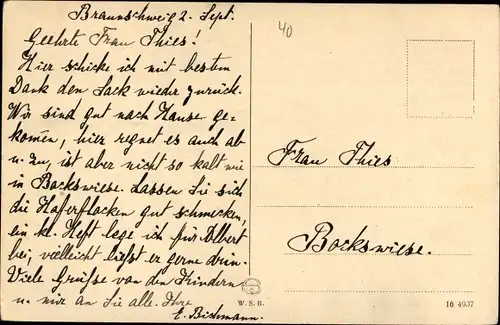 Braunschweig 2. Sept.
40
Geehrte Frau Thies!
Hier schicke ich mit bestem
Dank den Sack wieder zurück.
Wir sind gut nach Hause ge-
kommen, hier regnet es auch ab
u. zu, ist aber nicht so kalt wie
in Bockswiese. Lassen Sie sich
die Haferflocken gut schmecken,
ein kl. Heft lege ich für Albert
bei, vielleicht liest er gerne drin.
Viele Grüsse von den Kindern
u. mir an Sie alle. Ihre
E. Bichmann.
Frau Thies
Bockswiese.
W.S.B.
16 4907